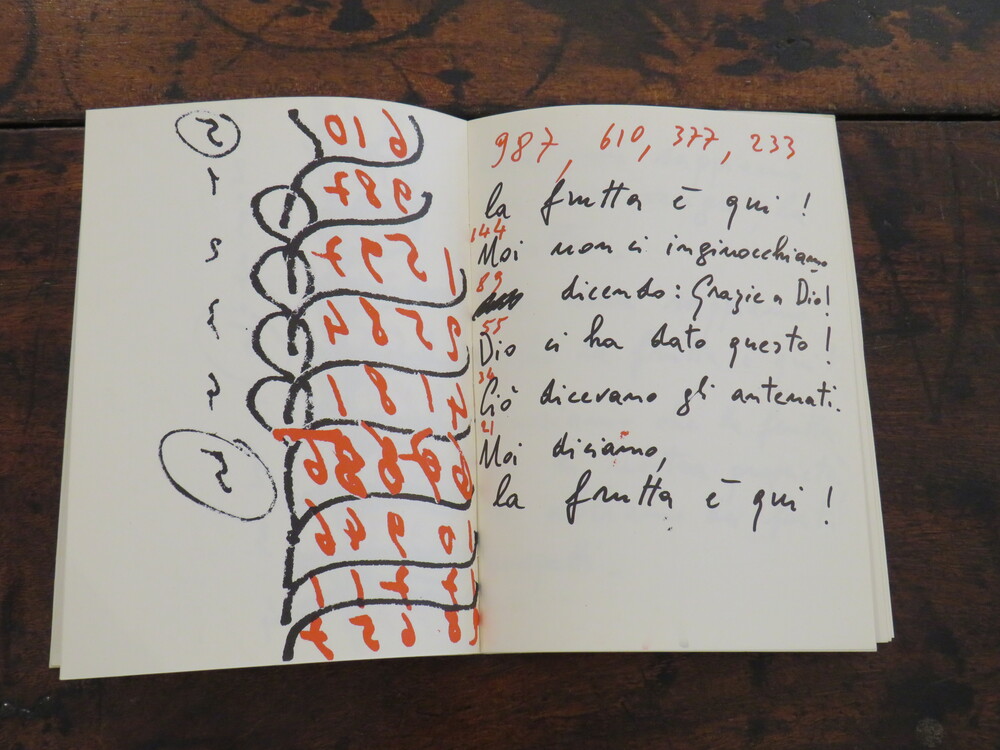 5
610
1
987
2
1597
3
2584
4
4181
5
10946
987, 610, 377, 233
la frutta è qui !
144
Noi non ci inginocchiamo
89
dicendo: Grazie a Dio!
55
Dio ci ha dato questo !
34
Ciò dicevano gli antenati.
21
Noi diciamo,
la frutta è qui !